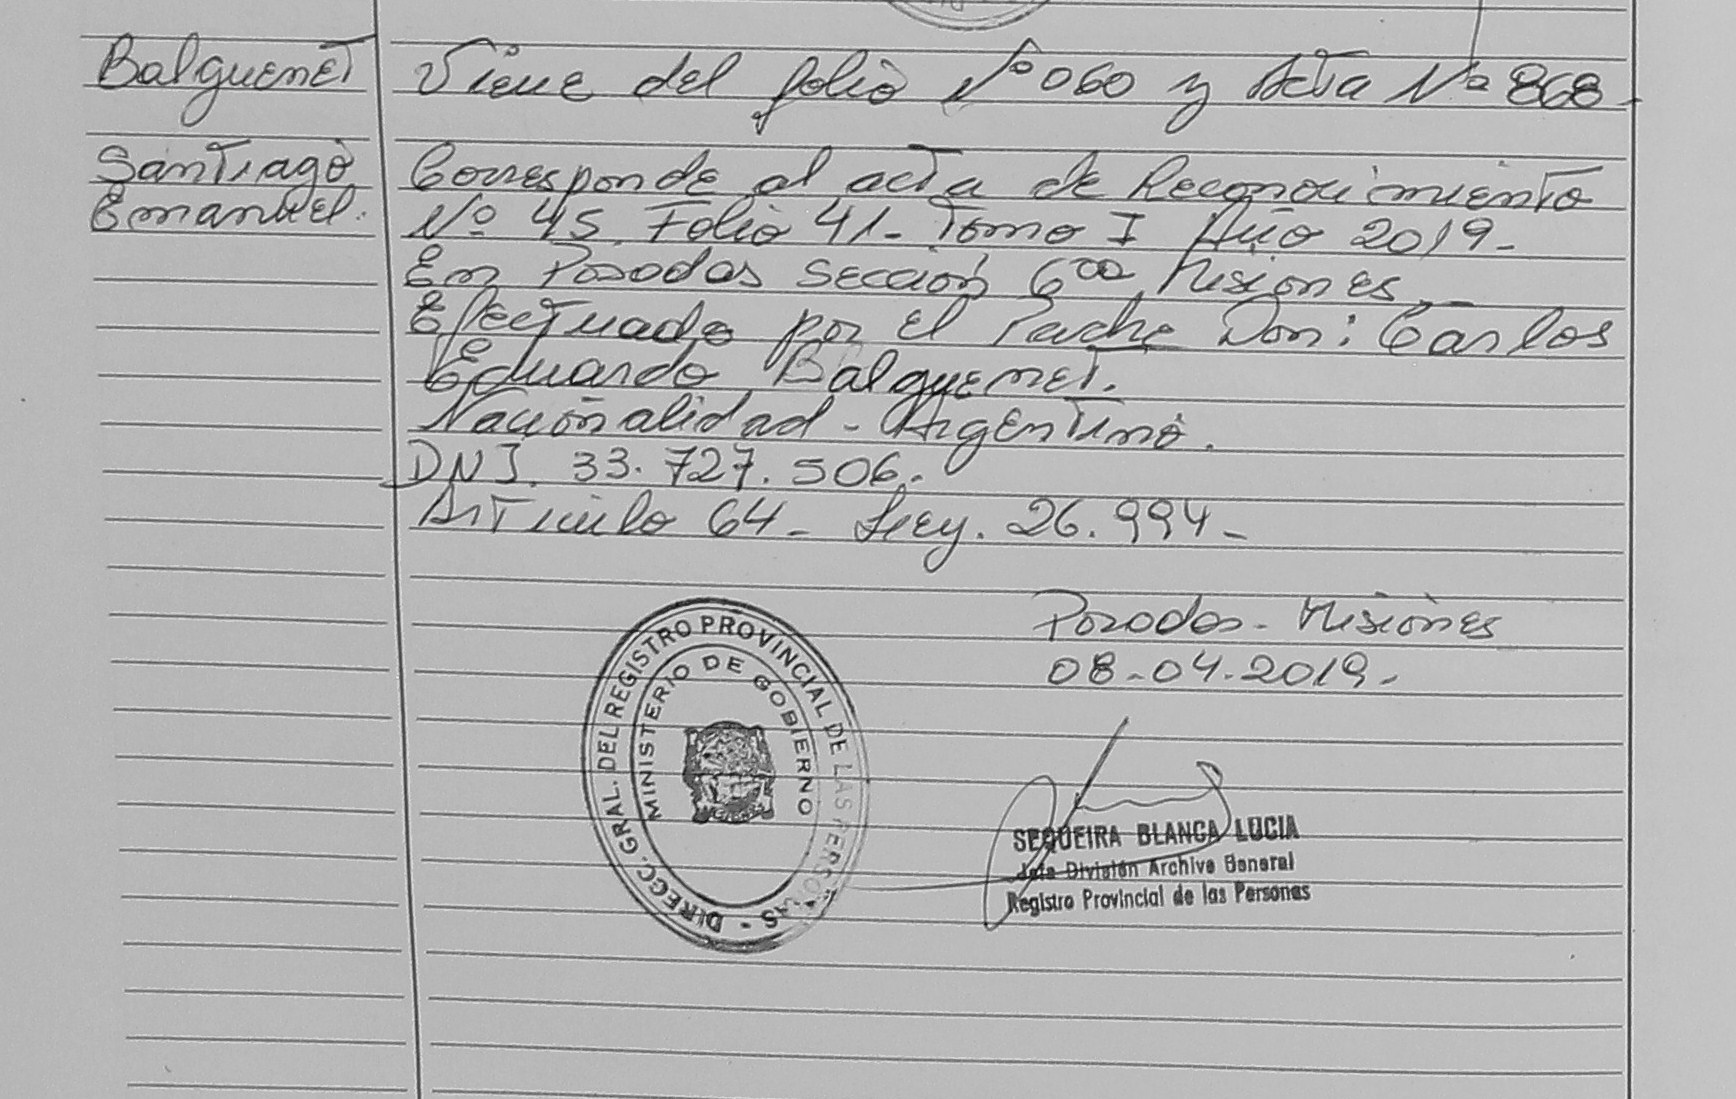 Balguenet
Santiago
Emanuel.
Viene del folio Nº 060 y Acta Nº 868
Corresponde al acta de Reconocimiento
Nº 45 Folio 41- Tomo I Año 2019-
En Posadas Sección 6ta Misiones
Efectuado por el Padre Don: Carlos
Eduardo Balguenet.
Nacionalidad - Argentino.
DNI. 33.727.506.
Articulo 64- Ley. 26.994-
Posadas - Misiones
08-04-2019-
DIRECC. GRAL. DEL REGISTRO PROVINCIAL DE LAS PERSONAS -
MINISTERIO DE GOBIERNO
SEQUEIRA BLANCA LUCIA
Jefe División Archivo General
Registro Provincial de las Personas